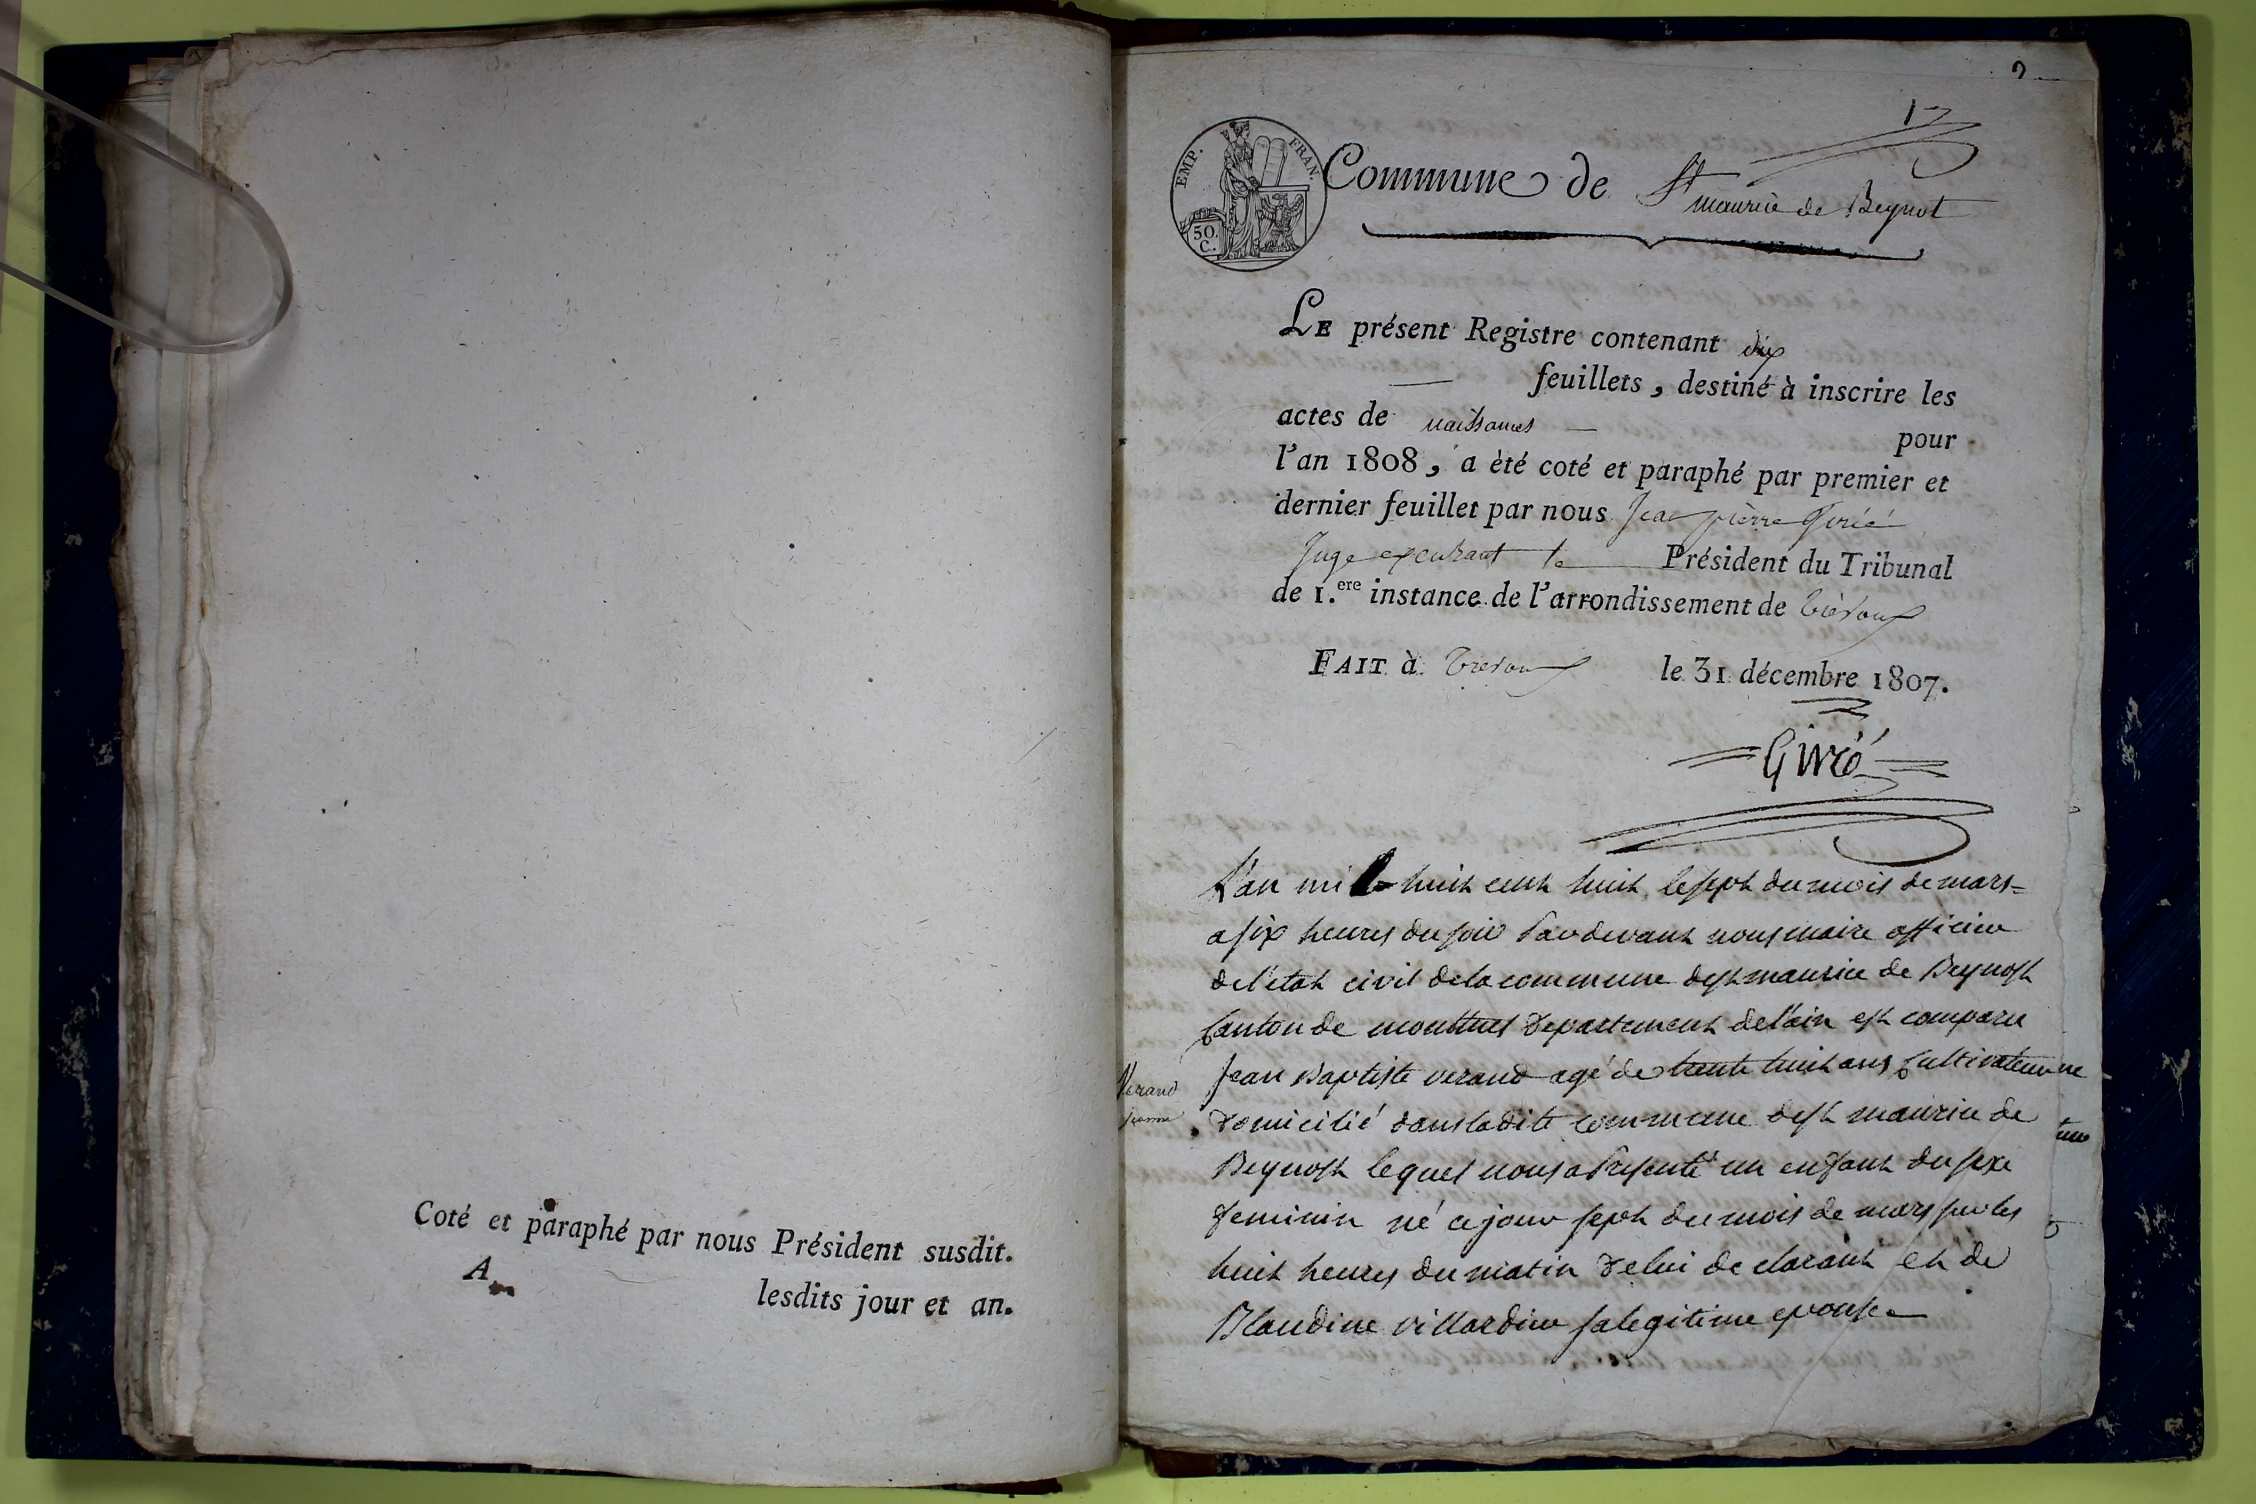 Coté et paraphé par nous Président susdit.
A
lesdits jour et an.
1
EMP. FRAN.
50.
C.
Commune de St maurice de Beynot
LE présent Registre contenant dix
feuillets, destiné à inscrire les
actes de naissances — pour
l'an 1808, a èté coté et paraphé par premier et
dernier feuillet par nous Jean pierre Givré
Juge exerçant le Président du Tribunal
de 1.ere instance de l'arrondissement de Trévoux
FAIT à Trevoux le 31 décembre 1807.
Givré
L'an mil huit cent huit le sept du mois de mars
a six heures du soir Pardevant nous maire officier
de l'etat civil de la commune de st maurice de Beynost
Canton de montluel departement de l'ain est comparu
Jean Baptiste verand agé de trente huit ans Cultivateur
Verand
domicilié dans ladite commune de st maurice de
Beynost lequel nous a Presenté un enfant du sexe
feminin né ce jour sept du mois de mars sur les
huit heures du matin de lui declarant et de
Blandine villardier sa legitime epouse